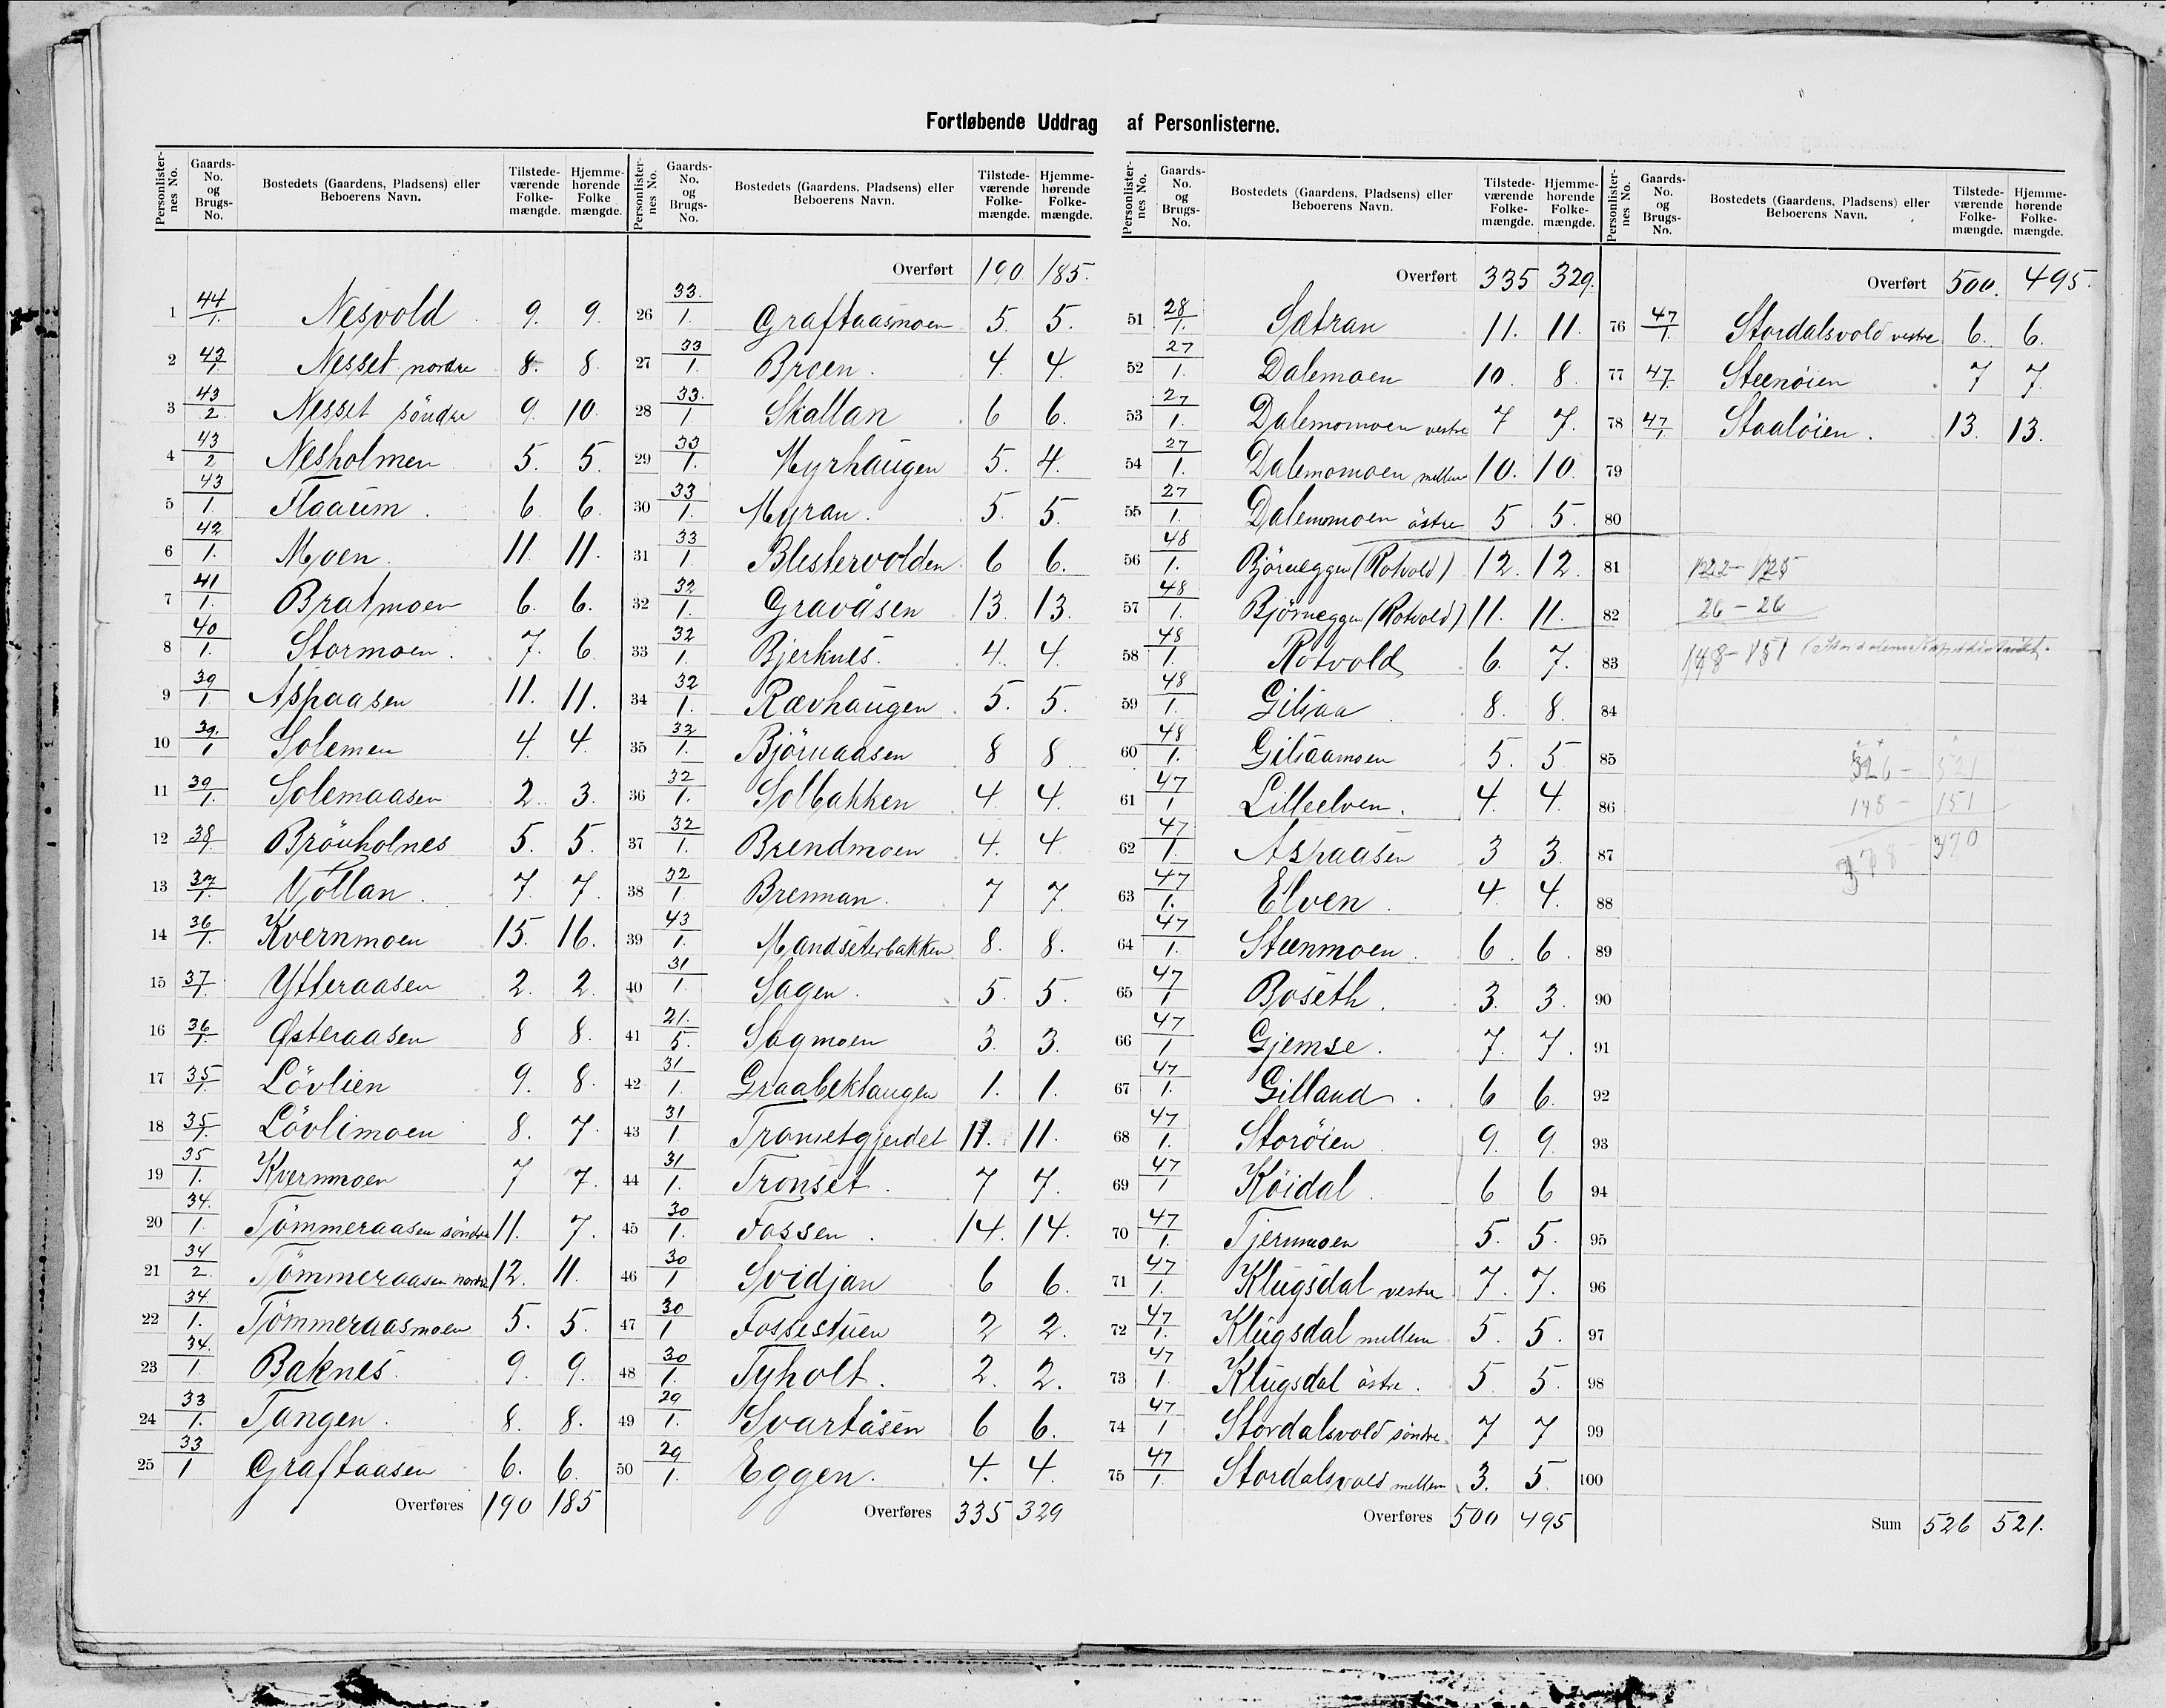 Fortløbende Uddrag af Personlisterne.
Personlister-nes No. | Gaards-No. og Brugs-No. | Bostedets (Gaardens, Pladsens) eller Beboerens Navn. | Tilstede-værende Folke-mængde. | Hjemme-hørende Folke mængde.
1 44/1. Nesvold 9. 9.
2 43/1 Nesset nordre 8. 8.
3 43/2. Nesset søndre 9. 10.
4 43/2 Nesholmen 5. 5.
5 43/1. Flaaum 6. 6.
6 42/1. Moen 11. 11.
7 41/1. Bratmoen 6. 6.
8 40/1. Stormoen 7. 6
9 39/1. Aspaasen 11. 11.
10 39./1 Solemen 4. 4.
11 39/1. Solemaasen 2. 3.
12 38/1. Brövholnes 5. 5.
13 37/1. Vollan 7. 7.
14 36/1. Kvernmoen 15. 16.
15 37/1. Ytteraasen 2. 2.
16 36/1. Østeraasen 8 8.
17 35/1. Lövlien 9. 8.
18 35/1. Lövlimoen 8. 7.
19 35/1. Kvernmoen 7 7.
20 34./1. Tömmeraasen söndre 11. 7.
21 34/2. Tömmeraasen nordre 12. 11.
22 34./1. Tömmeraasmoen 5. 5.
23 34./1. Baknes. 9. 9.
24 33/1. Tangen. 8. 8.
25 33/1 Graftaasen 6. 6.
Overføres 190 185
Personlister-nes No. | Gaards-No. og Brugs-No. | Bostedets (Gaardens, Pladsens) eller Beboerens Navn. | Tilstede-værende Folke-mængde. | Hjemme-hørende Folke-mængde.
Overført 190 185.
26 33./1. Graftaasmoen 5. 5.
27 33/1. Broen. 4. 4.
28 33./1 Skallan 6 6.
29 33/1. Myrhaugen 5. 4.
30 33/1. Myran. 5. 5.
31 33/1. Blestervolden 6 6.
32 32/1. Gravåsen 13. 13.
33 32/1. Bjerknes. 4. 4.
34 32/1. Rævhaugen 5. 5.
35 32/1. Björnaasen 8 8
36 32/1. Solbakken 4. 4.
37 32/1. Brendmoen 4. 4.
38 32/1 Brennan. 7 7.
39 43/1. Mandseterbakken 8. 8.
40 31/1. Sagen. 5. 5.
41 21./5. Sagmoen 3. 3.
42 31/1. Graabekhaugen 1. 1.
43 31/1. Tronsetgjerdet 11. 11.
44 31/1. Tronset. 7 7.
45 30/1. Fossen. 14. 14.
46 30/1 Svidjan 6 6.
47 30/1 Fossestuen 2 2.
48 30/1. Tyholt. 2. 2.
49 29/1. Svartåsen 6 6.
50 29/1. Eggen. 4. 4.
Overføres 335 329
Personlister-nes No. | Gaards-No. og Brugs-No. | Bostedets (Gaardens, Pladsens) eller Beboerens Navn. | Tilstede-værende Folke-mængde. | Hjemme-hørende Folke-mængde.
Overført 335 329.
51 28/1. Sætran 11. 11.
52 27/1. Dalemoen 10. 8.
53 27/1. Dalemomoen vestre 7 7.
54 27/1. Dalemomoen mellem 10. 10.
55 27/1. Dalemomoen östre 5 5.
56 48/1. Björneggen (Rotvold) 12. 12.
57 48/1. Björneggen (Rotvold) 11. 11.
58 48/1. Rotvold 6. 7.
59 48/1. Gilsaa 8. 8.
60 48/1. Gilsaamoen 5. 5
61 47/1 Lilleelven. 4. 4.
62 47/1. Aspaasen 3 3.
63 47/1. Elven 4. 4.
64 47/1. Steenmoen 6. 6.
65 47/1 Boseth. 3. 3.
66 47/1 Gjemse. 7. 7.
67 47/1. Gilland 6 6.
68 47/1. Storöien 9. 9.
69 47/1 Köidal 6 6
70 47/1. Tjernmoen 5. 5.
71 47/1. Klugsdal vestre 7. 7.
72 47/1. Klugsdal mellem 5. 5.
73 47/1. Klugsdal östre. 5. 5.
74 47/1 Stordalsvold söndre 7 7
75 47/1. Stordalsvold mellem 3. 5.
Overføres 500 495
Personlister-nes No. | Gaards-No. og Brugs-No. | Bostedets (Gaardens, Pladsens) eller Beboerens Navn. | Tilstede-værende Folke-mængde. | Hjemme-hørende Folke-mængde.
Overført 500. 495.
76 47/1. Stordalsvold vestre 6. 6.
77 47/1. Steenöien 7 7.
78 47/1 Staalöien. 13. 13.
79
80
81
82 26 - 26
83
84
85 521
86 148 - 151
87 378 370
88
89
90
91
92
93
94
95
96
97
98
99
100
Sum 526 521.